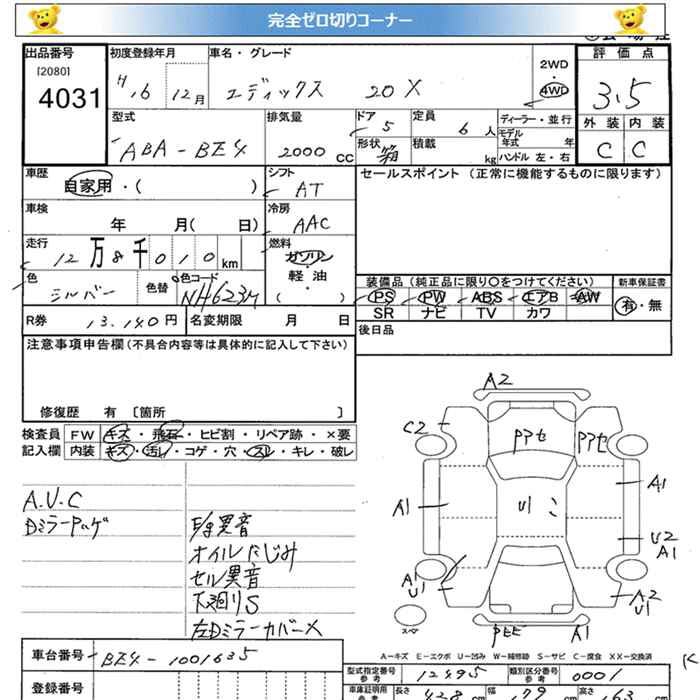 完全ゼロ切りコーナー
出品番号 初度登録年月 車名・グレード 2WD 評価点
[2080]
4031
H.6 12月 エディックス 20X 4WD 3.5
型式 排気量 ドア 定員 ディーラー・並行 外装 内装
ABA-BE4 2000 CC 5 6人 モデル年式 年 C C
形状 箱 積載 kg ハンドル 左・右
車歴 シフト セールスポイント(正常に機能するものに限ります)
自家用・( ) AT
車検 冷房
年 月( 日) AAC
走行 燃料
12万8千010km ガソリン
軽・油
( ・ )
色 色替 色コード 装備品(純正品に限り○をつけてください) 新車保証書
シルバー NH623M PS PW ABS エアB AW 有・無
SR ナビ TV カワ
R券 13.140円 名変期限 月 日 後日品
注意事項申告欄(不具合内容等は具体的に記入して下さい)
修復歴 有 〔箇所 〕
検査員 FW キズ・飛石・ヒビ割・リペア跡・×要
記入欄 内装 キズ・汚レ・コゲ・穴・スレ・キレ・破レ
A.V.C
Dミラー
異音
オイルにじみ
セル異音
下廻りS
左Dミラーカバー×
A2
C2
A1
A1
U2
A1
A1
U1
A2
U1
A1
スペア
A-キズ E-エクボ U-凹み W-補修跡 S-サビ C-腐食 XX-交換済
車台番号 BE4-1001635
登録番号
型式指定番号 参考 12495 類別区分番号 参考 0001
車庫証明用 参考 長さ 428cm 幅 高さ